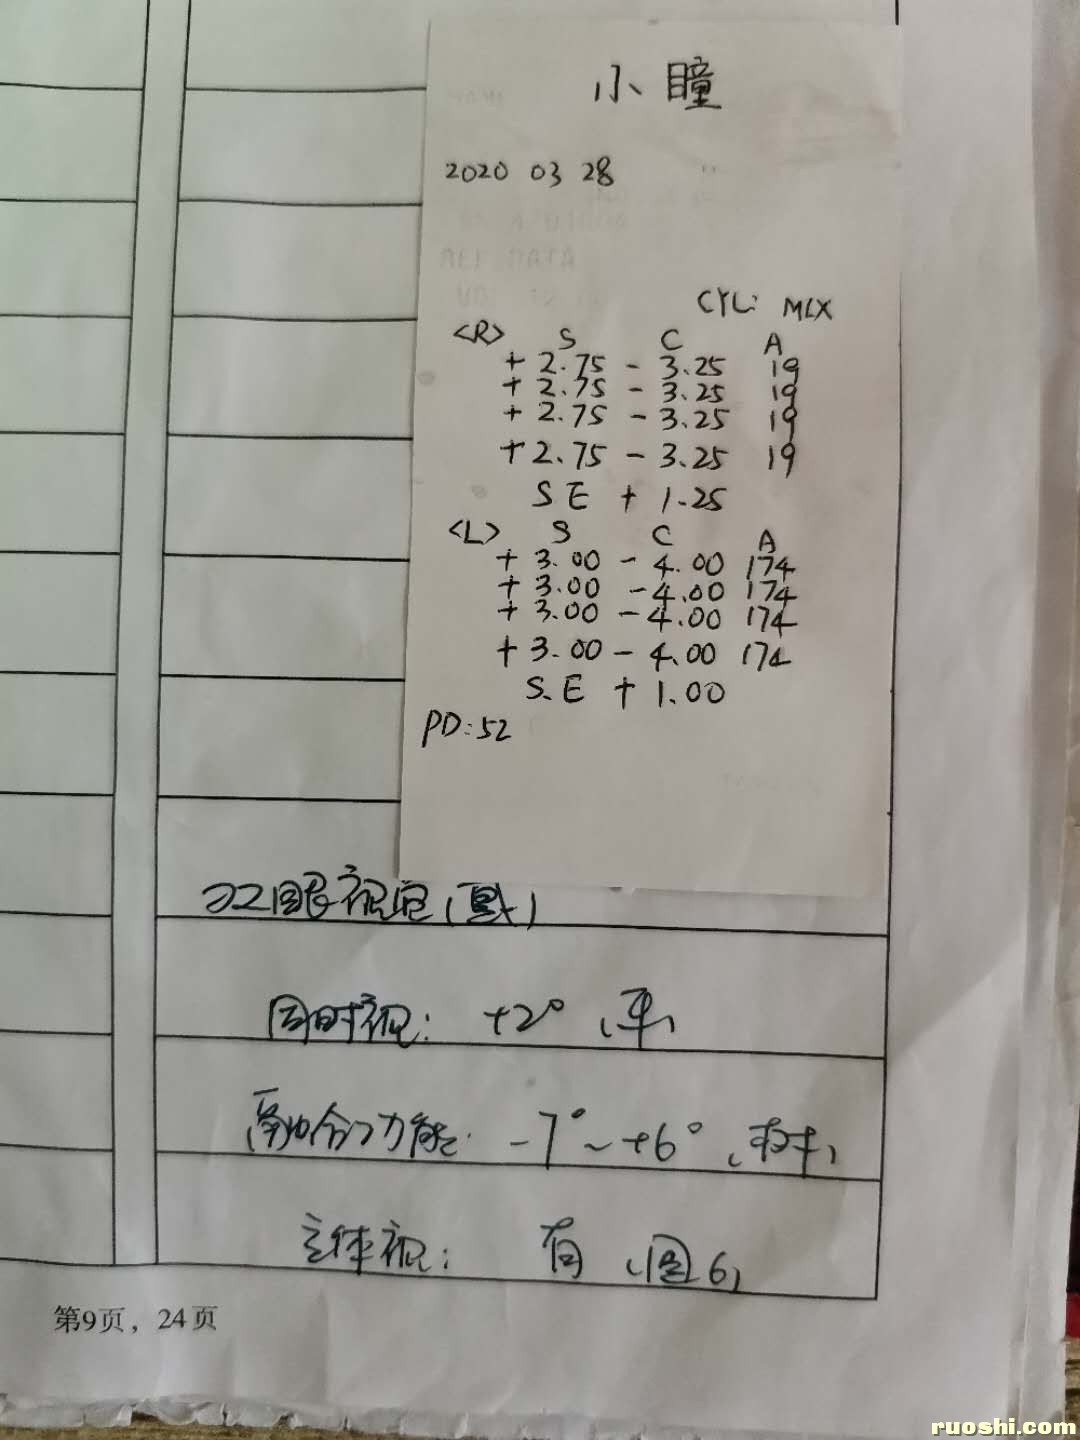 小瞳
2020 03 28
CYL: MIX
<R> S C A
+ 2.75 - 3.25 19
+ 2.75 - 3.25 19
+ 2.75 - 3.25 19
+ 2.75 - 3.25 19
SE + 1.25
<L> S C A
+ 3.00 - 4.00 174
+ 3.00 - 4.00 174
+ 3.00 - 4.00 174
+ 3.00 - 4.00 174
S.E + 1.00
PD: 52
双眼视觉
同时视: +2°
融合功能: -7°~+6°
立体视: 有 (图6)
第9页，24页
ruoshi.com